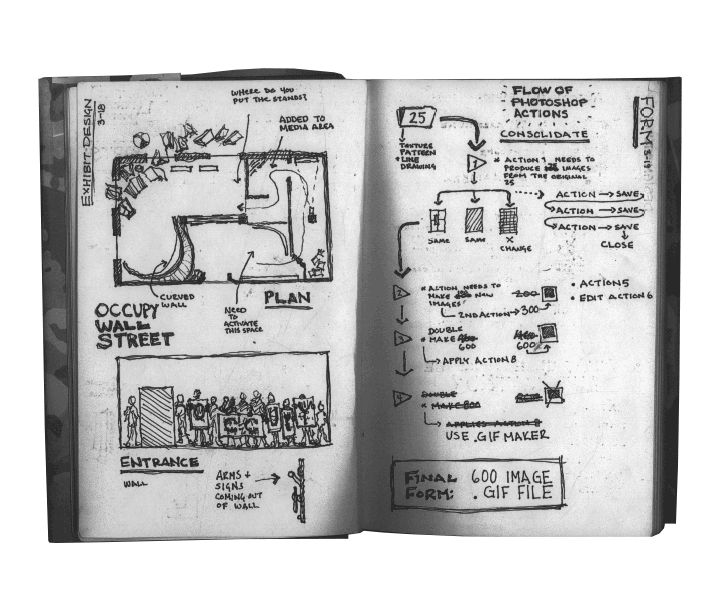 EXHIBIT DESIGN
3-18
WHERE DO YOU
PUT THE STANDS?
ADDED TO
MEDIA AREA
CURVED
WALL
NEED
TO
ACTIVATE
THIS SPACE
PLAN
OCCUPY
WALL
STREET
ENTRANCE
WALL
ARMS +
SIGNS
COMING OUT
OF WALL
FLOW OF
PHOTOSHOP
ACTIONS
CONSOLIDATE
FORM
25
TEXTURE
PATTERN
+ LINE
DRAWING
1
* ACTION 1 NEEDS TO
PRODUCE IMAGES
FROM THE ORIGINAL
25
ACTION → SAVE
ACTION → SAVE
ACTION → SAVE
CLOSE
SAME
SAME
X
CHANGE
2
* ACTION NEEDS TO
MAKE NEW
IMAGES
200
2ND ACTION → 300
• ACTION 5
• EDIT ACTION 6
3
DOUBLE
* MAKE
600
600
APPLY ACTION 8
4
DOUBLE
* MAKE 800
APPLIES ACTION 8
USE .GIF MAKER
FINAL
FORM:
600 IMAGE
.GIF FILE